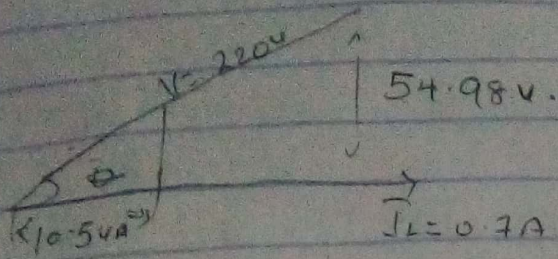 V = 220v
54.98v.
θ
10.54A
I_L = 0.7A